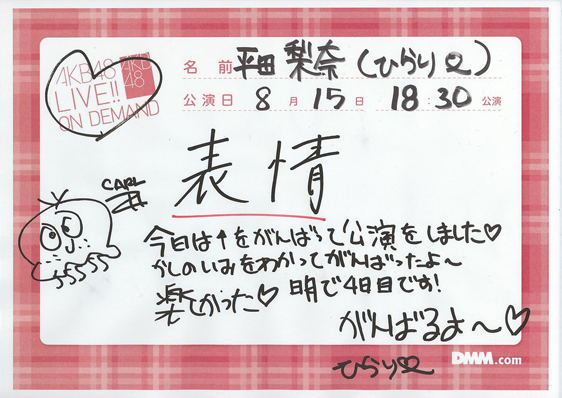 AKB48
LIVE!!
ON DEMAND
AKB
48
名前 平田 梨奈 (ひらり)
公演日 8月 15日 18:30 公演
表情
CARL
今日は↑をがんばって公演をしました♡
かしのいみをわかってがんばったよ〜
楽しかった♡ 明で4日目です!
がんばるよ〜♡
ひらり
DMM.com